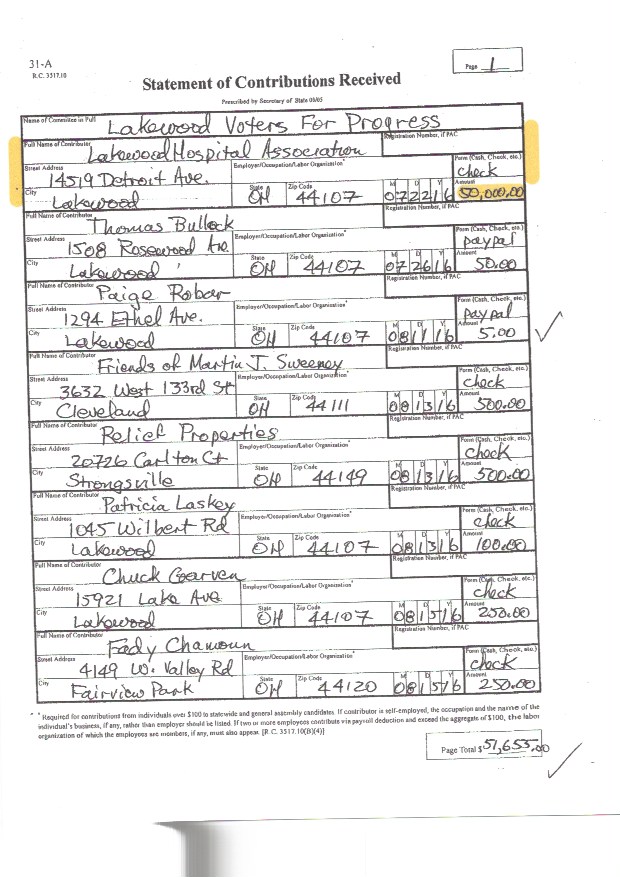 31-A
R.C. 3517.10
Page 1
Statement of Contributions Received
Prescribed by Secretary of State 06/05
Name of Committee in Full Lakewood Voters For Progress
Full Name of Contributor Lakewood Hospital Association Registration Number, if PAC
Street Address 14519 Detroit Ave. Employer/Occupation/Labor Organization* Form (Cash, Check, etc.) check
City Lakewood State OH Zip Code 44107 M D Y 072216 Amount 50,000.00
Full Name of Contributor Thomas Bullock Registration Number, if PAC
Street Address 1508 Rosewood Ave Employer/Occupation/Labor Organization* Form (Cash, Check, etc.) paypal
City Lakewood State OH Zip Code 44107 M D Y 072616 Amount 50.00
Full Name of Contributor Paige Robar Registration Number, if PAC
Street Address 1294 Ethel Ave. Employer/Occupation/Labor Organization* Form (Cash, Check, etc.) paypal
City Lakewood State OH Zip Code 44107 M D Y 081116 Amount 5.00
Full Name of Contributor Friends of Martin J. Sweeney Registration Number, if PAC
Street Address 3632 West 133rd St Employer/Occupation/Labor Organization* Form (Cash, Check, etc.) check
City Cleveland State OH Zip Code 44111 M D Y 081316 Amount 500.00
Full Name of Contributor Relief Properties Registration Number, if PAC
Street Address 20726 Carlton Ct Employer/Occupation/Labor Organization* Form (Cash, Check, etc.) check
City Strongsville State OH Zip Code 44149 M D Y 081316 Amount 500.00
Full Name of Contributor Patricia Laskey Registration Number, if PAC
Street Address 1045 Wilbert Rd Employer/Occupation/Labor Organization* Form (Cash, Check, etc.) check
City Lakewood State OH Zip Code 44107 M D Y 081316 Amount 100.00
Full Name of Contributor Chuck Garven Registration Number, if PAC
Street Address 15921 Lake Ave Employer/Occupation/Labor Organization* Form (Cash, Check, etc.) check
City Lakewood State OH Zip Code 44107 M D Y 081516 Amount 250.00
Full Name of Contributor Fady Chamoun Registration Number, if PAC
Street Address 4149 W. Valley Rd Employer/Occupation/Labor Organization* Form (Cash, Check, etc.) check
City Fairview Park State OH Zip Code 44120 M D Y 081516 Amount 250.00
* Required for contributions from individuals over $100 to statewide and general assembly candidates. If contributor is self-employed, the occupation and the name of the
individual's business, if any, rather than employer should be listed. If two or more employees contribute via payroll deduction and exceed the aggregate of $100, the labor
organization of which the employees are members, if any, must also appear. [R.C. 3517.10(B)(4)]
Page Total $ 51,655.00